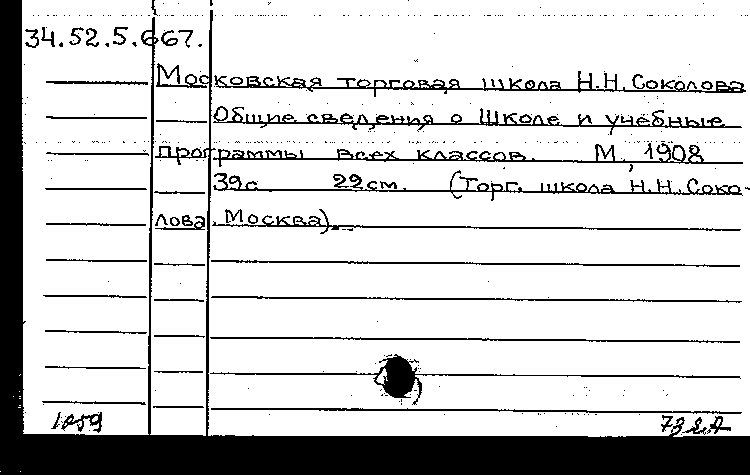 34.52.5.667.
Московская торговая школа Н.Н.Соколова
Общие сведения о Школе и учебные
программы всех классов. М., 1908
39с. 22см. (Торг. школа Н.Н.Соко-
лова. Москва).
1059